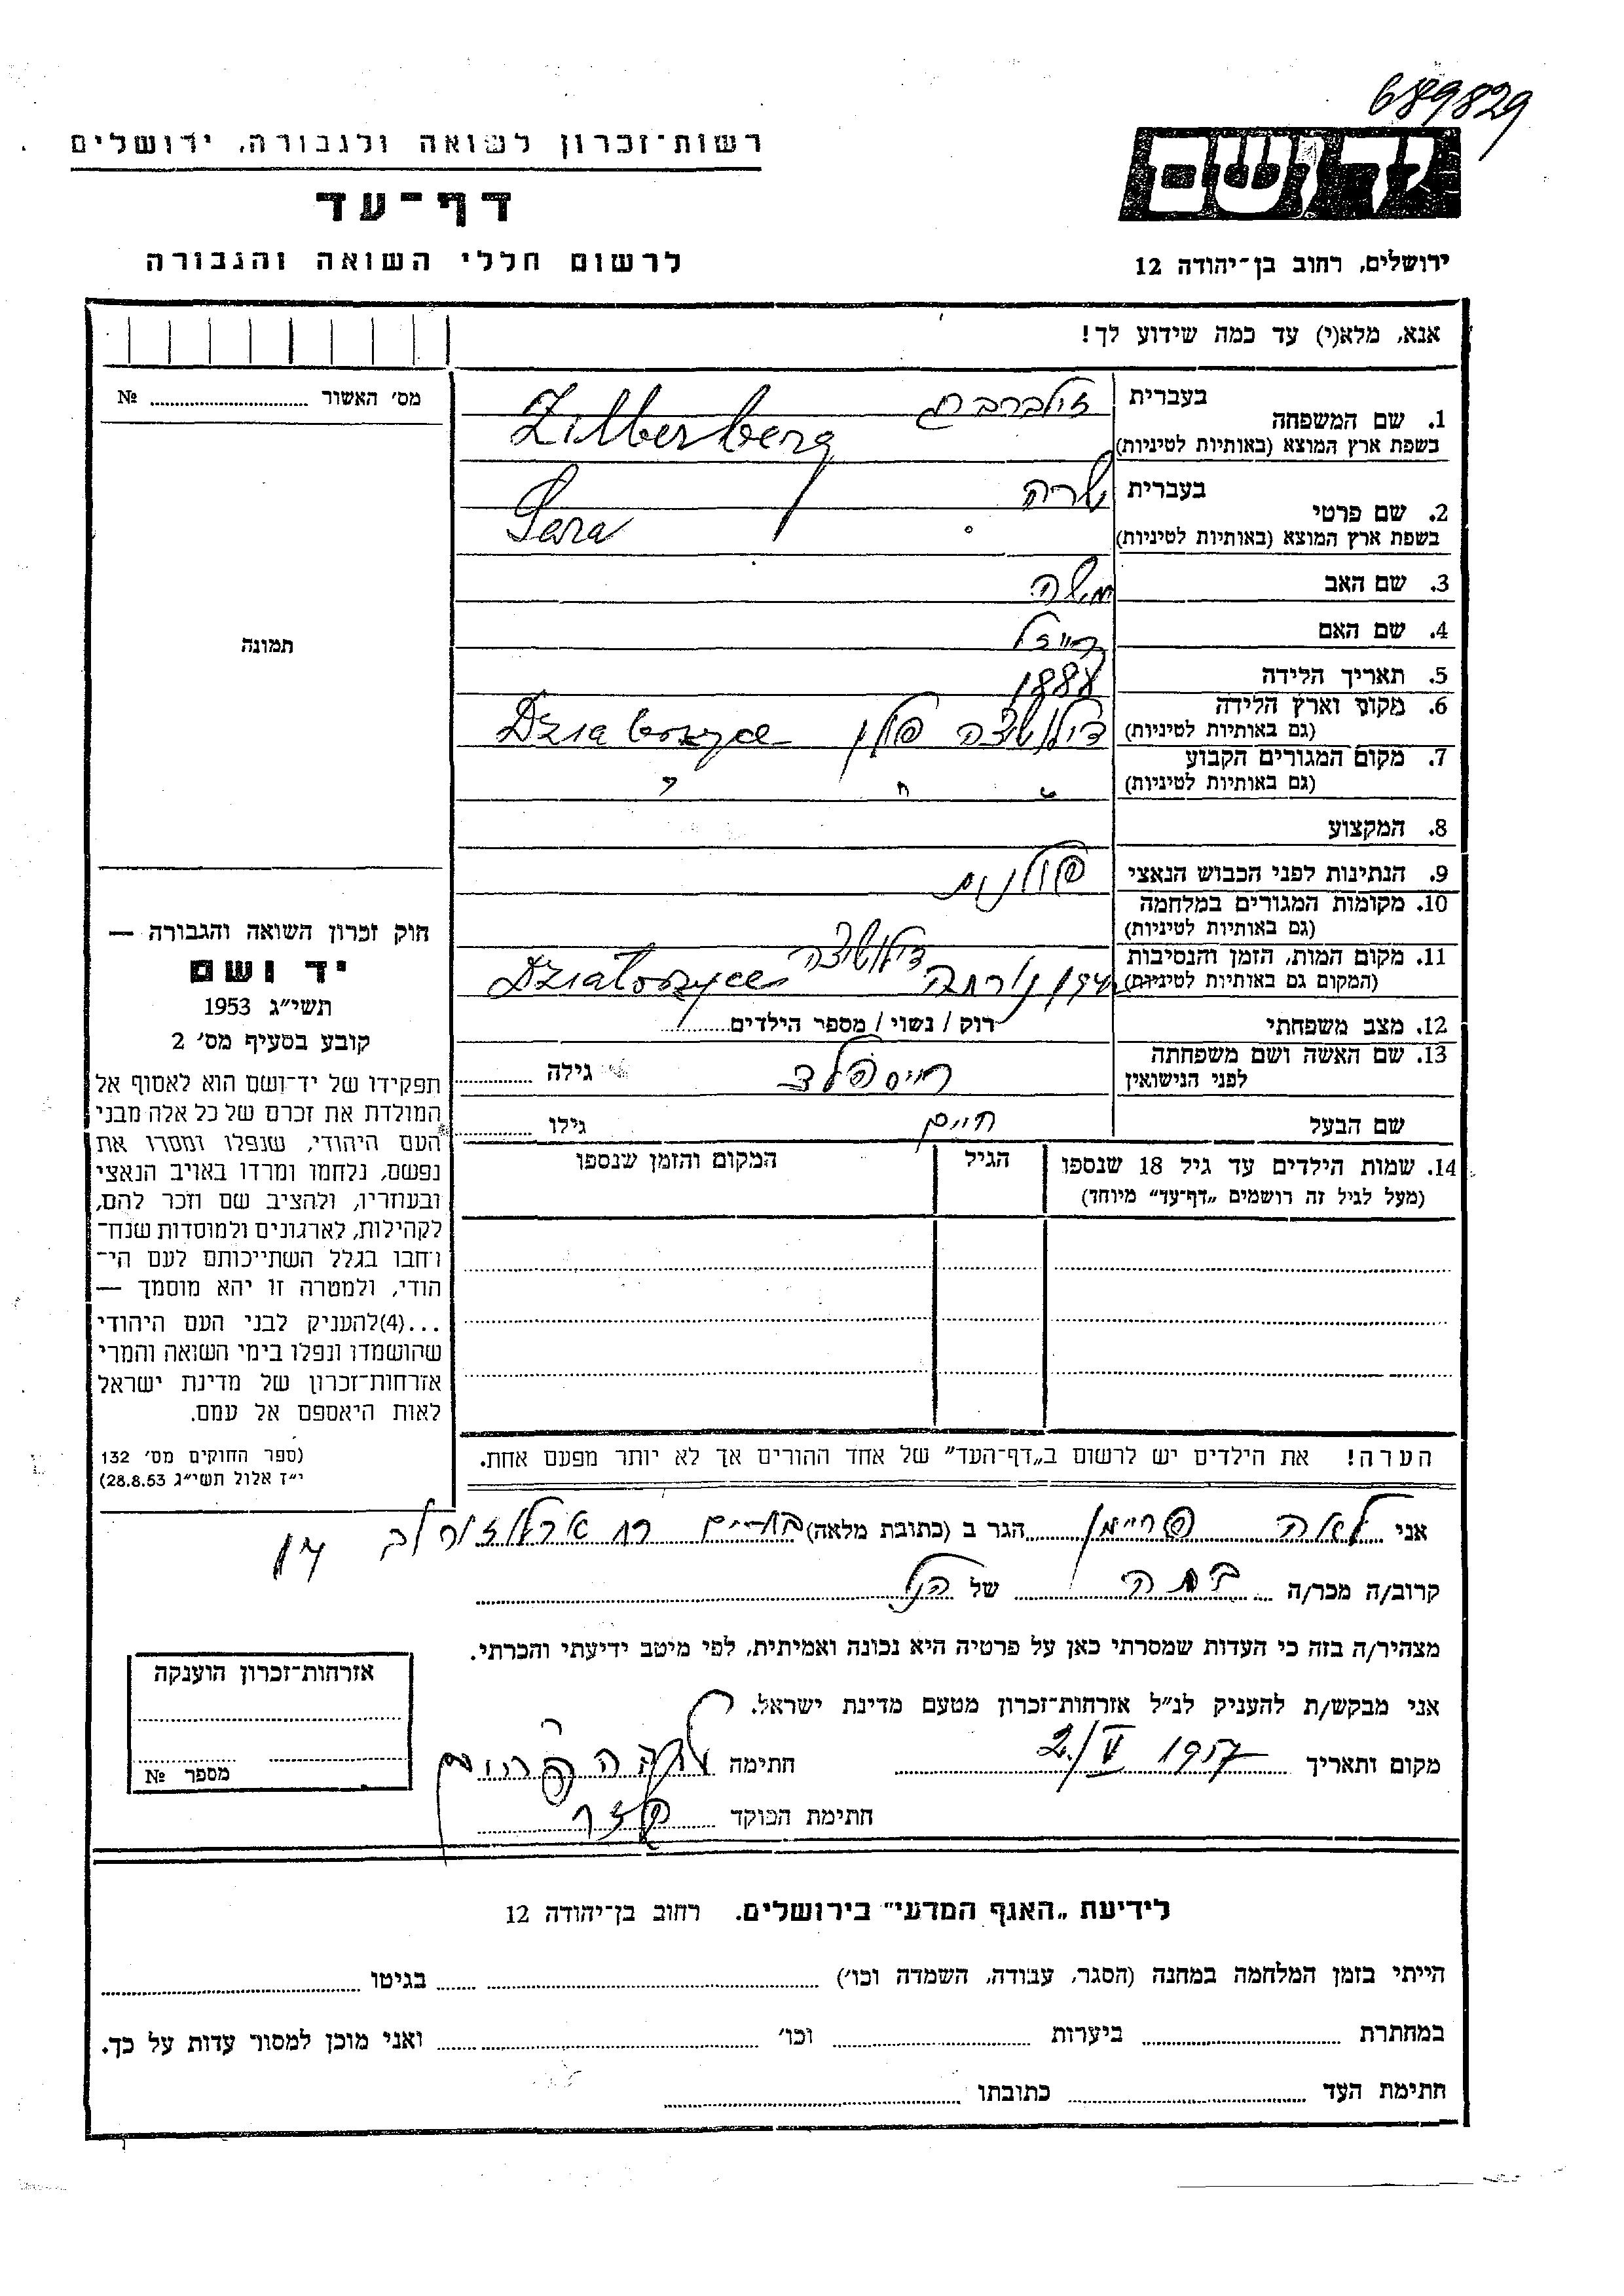 689829
יד ושם
רשות־זכרון לשואה ולגבורה, ירושלים
דף־עד
לרשום חללי השואה והגבורה
ירושלים, רחוב בן־יהודה 12
אנא, מלא(י) עד כמה שידוע לך!
מס׳ האשור № 
1. שם המשפחה בעברית זילברברג
בשפת ארץ המוצא (באותיות לטיניות) Zilberberg
2. שם פרטי בעברית שרה
בשפת ארץ המוצא (באותיות לטיניות) Sara
3. שם האב משה
4. שם האם
5. תאריך הלידה 1888
6. מקום וארץ הלידה
(גם באותיות לטיניות) פולין
7. מקום המגורים הקבוע
(גם באותיות לטיניות)
8. המקצוע
9. הנתינות לפני הכבוש הנאצי פולנית
10. מקומות המגורים במלחמה
(גם באותיות לטיניות)
11. מקום המות, הזמן והנסיבות
(המקום גם באותיות לטיניות) Dzialoszyce
12. מצב משפחתי רוק / נשוי / מספר הילדים
13. שם האשה ושם משפחתה
לפני הנישואין גילה
שם הבעל חיים גילו
14. שמות הילדים עד גיל 18 שנספו
(מעל לגיל זה רושמים „דף־עד” מיוחד)
הגיל
המקום והזמן שנספו
הערה! את הילדים יש לרשום ב„דף־העד” של אחד ההורים אך לא יותר מפעם אחת.
תמונה
חוק זכרון השואה והגבורה —
יד ושם
תשי״ג 1953
קובע בסעיף מס׳ 2
תפקידו של יד־ושם הוא לאסוף אל
המולדת את זכרם של כל אלה מבני
העם היהודי, שנפלו ומסרו את
נפשם, נלחמו ומרדו באויב הנאצי
ובעוזריו, ולהציב שם וזכר להם,
לקהילות, לארגונים ולמוסדות שנח־
רבו בגלל השתייכותם לעם הי־
הודי, ולמטרה זו יהא מוסמך —
...(4)להעניק לבני העם היהודי
שהושמדו ונפלו בימי השואה והמרי
אזרחות־זכרון של מדינת ישראל
לאות היאספם אל עמם.
(ספר החוקים מס׳ 132
י״ז אלול תשי״ג 28.8.53)
אני לאה פריימן הגר ב (כתובת מלאה) בת־ים רח ארלוזורוב
קרוב/ה מכר/ה בתה של הנ״ל
מצהיר/ה בזה כי העדות שמסרתי כאן על פרטיה היא נכונה ואמיתית, לפי מיטב ידיעתי והכרתי.
אני מבקש/ת להעניק לנ״ל אזרחות־זכרון מטעם מדינת ישראל.
מקום ותאריך 2/V 1957 חתימה
חתימת הפוקד
אזרחות־זכרון הוענקה
מספר №
לידיעת „האגף המדעי” בירושלים. רחוב בן־יהודה 12
הייתי בזמן המלחמה במחנה (הסגר, עבודה, השמדה וכו׳) בגיטו
במחתרת ביערות וכו׳ ואני מוכן למסור עדות על כך.
חתימת העד כתובתו